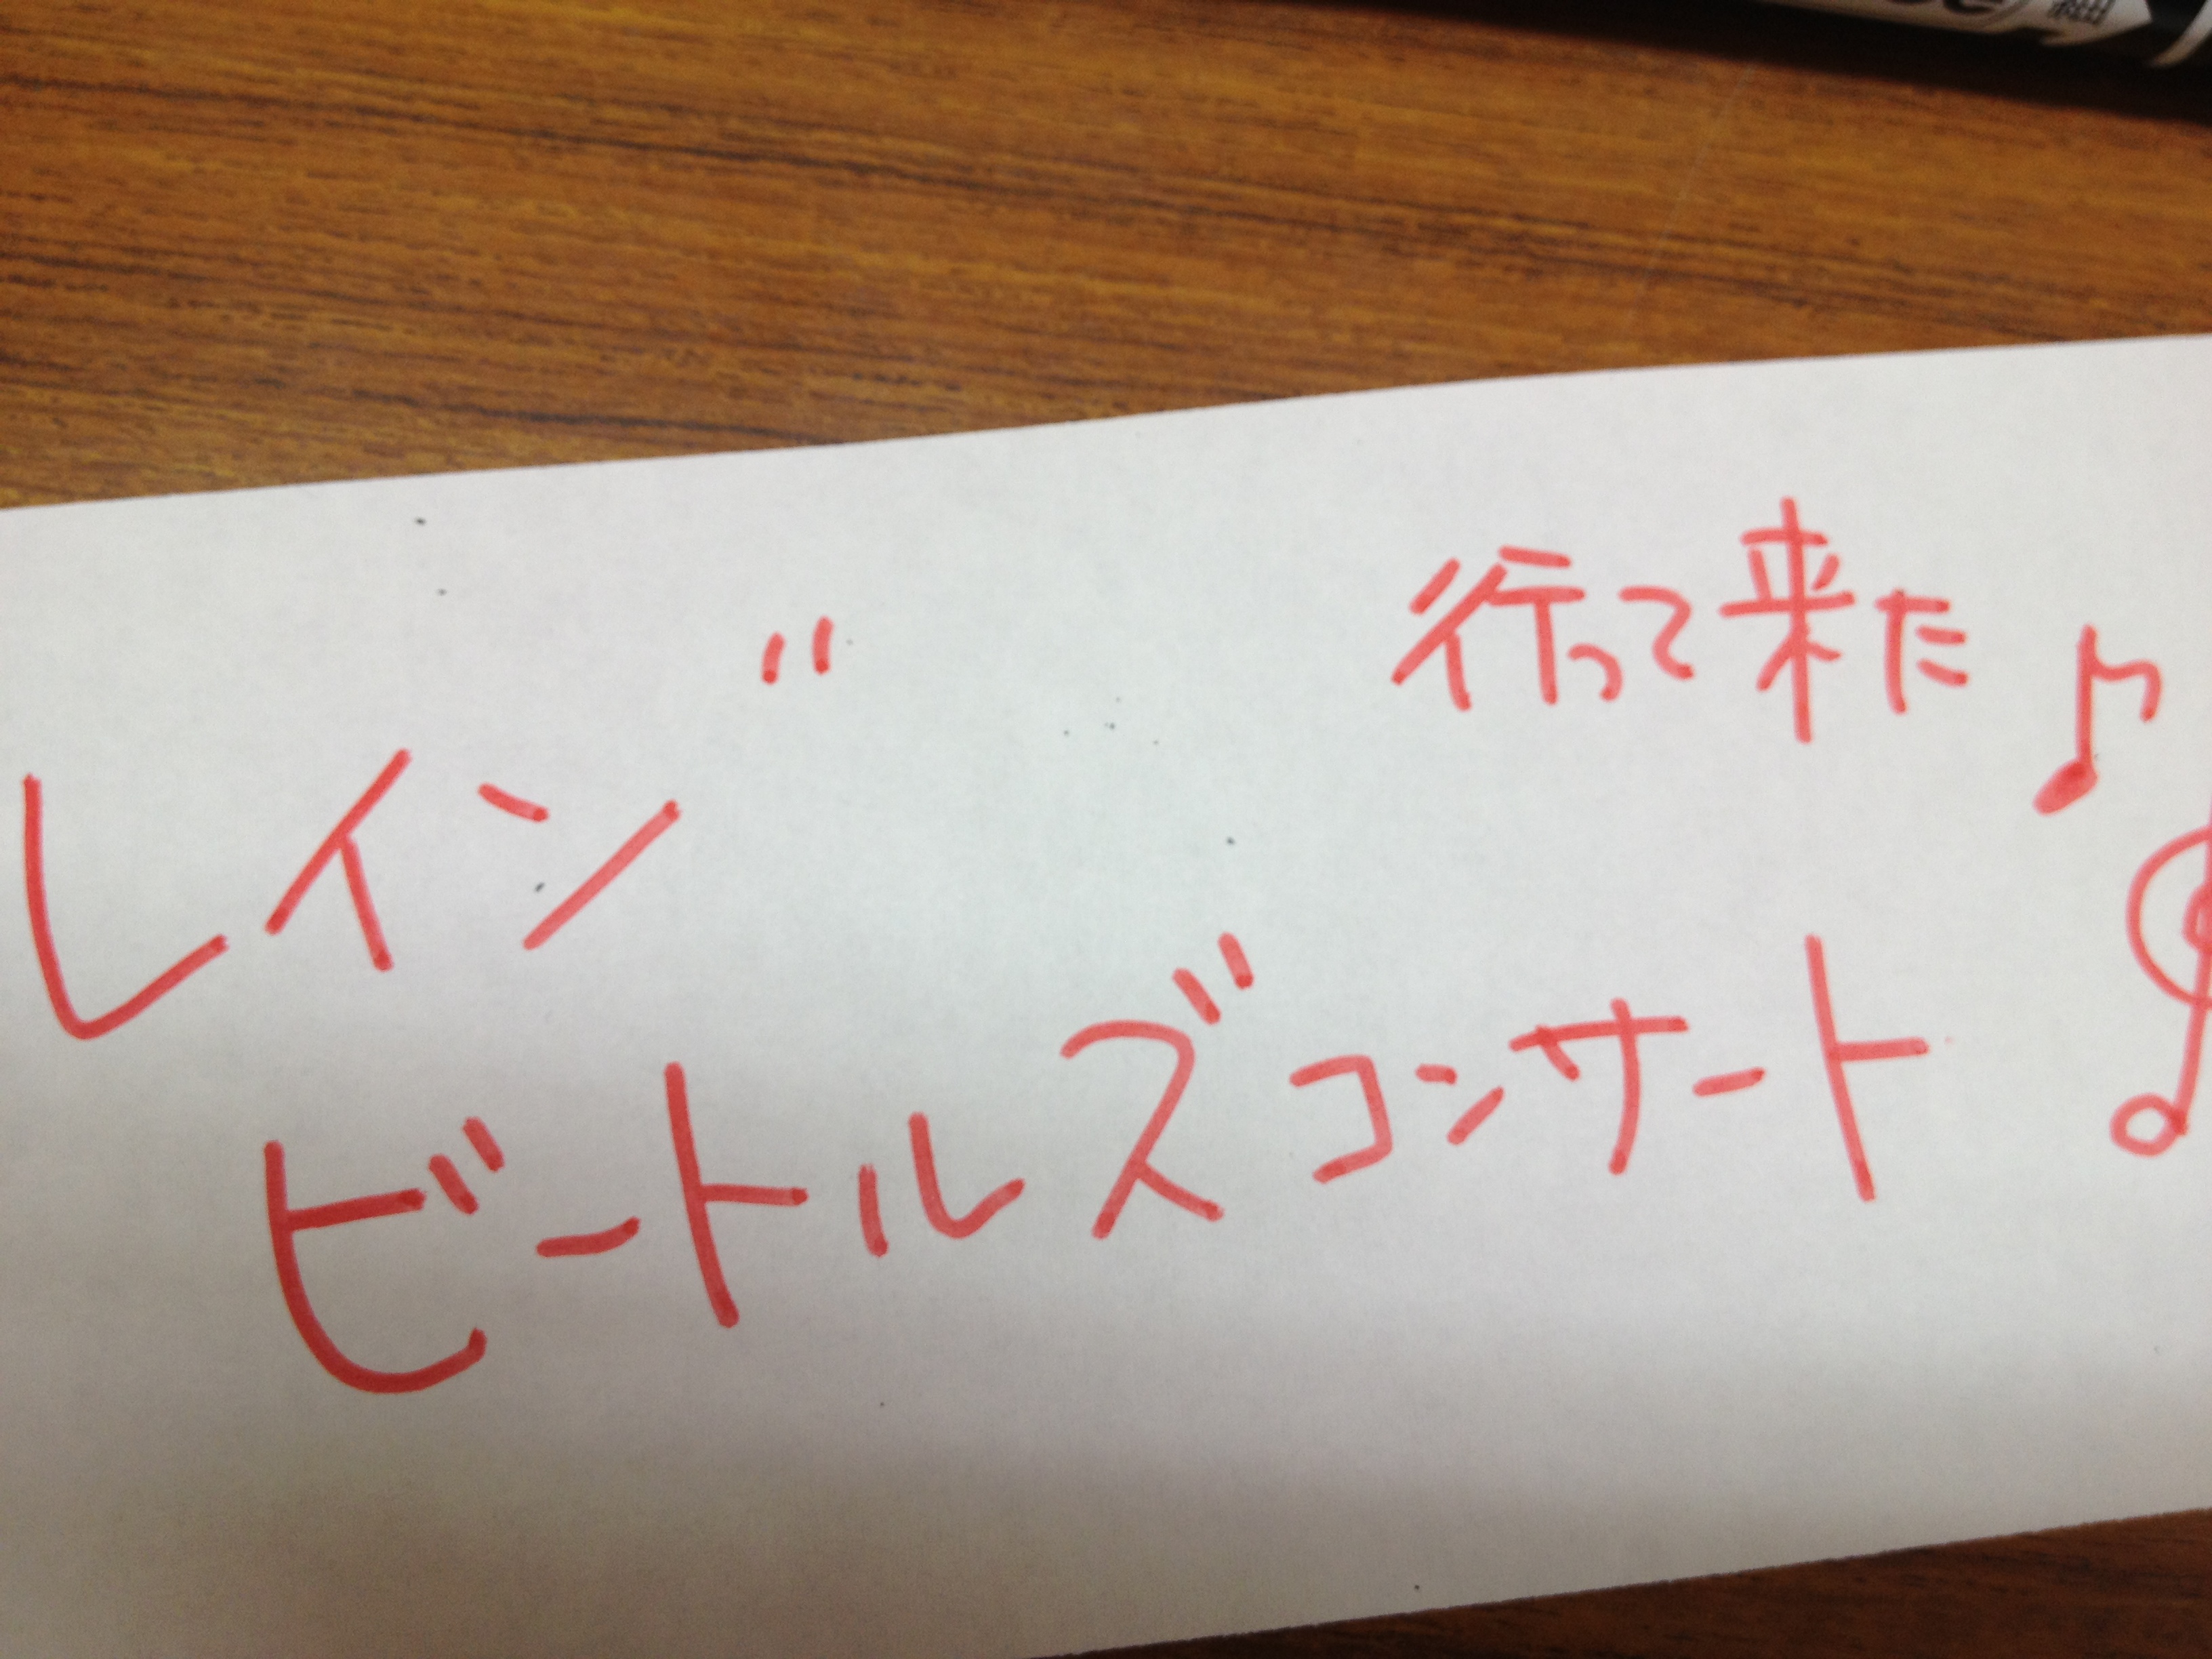 レイン"
行って来た♪
ビートルズコンサート
細